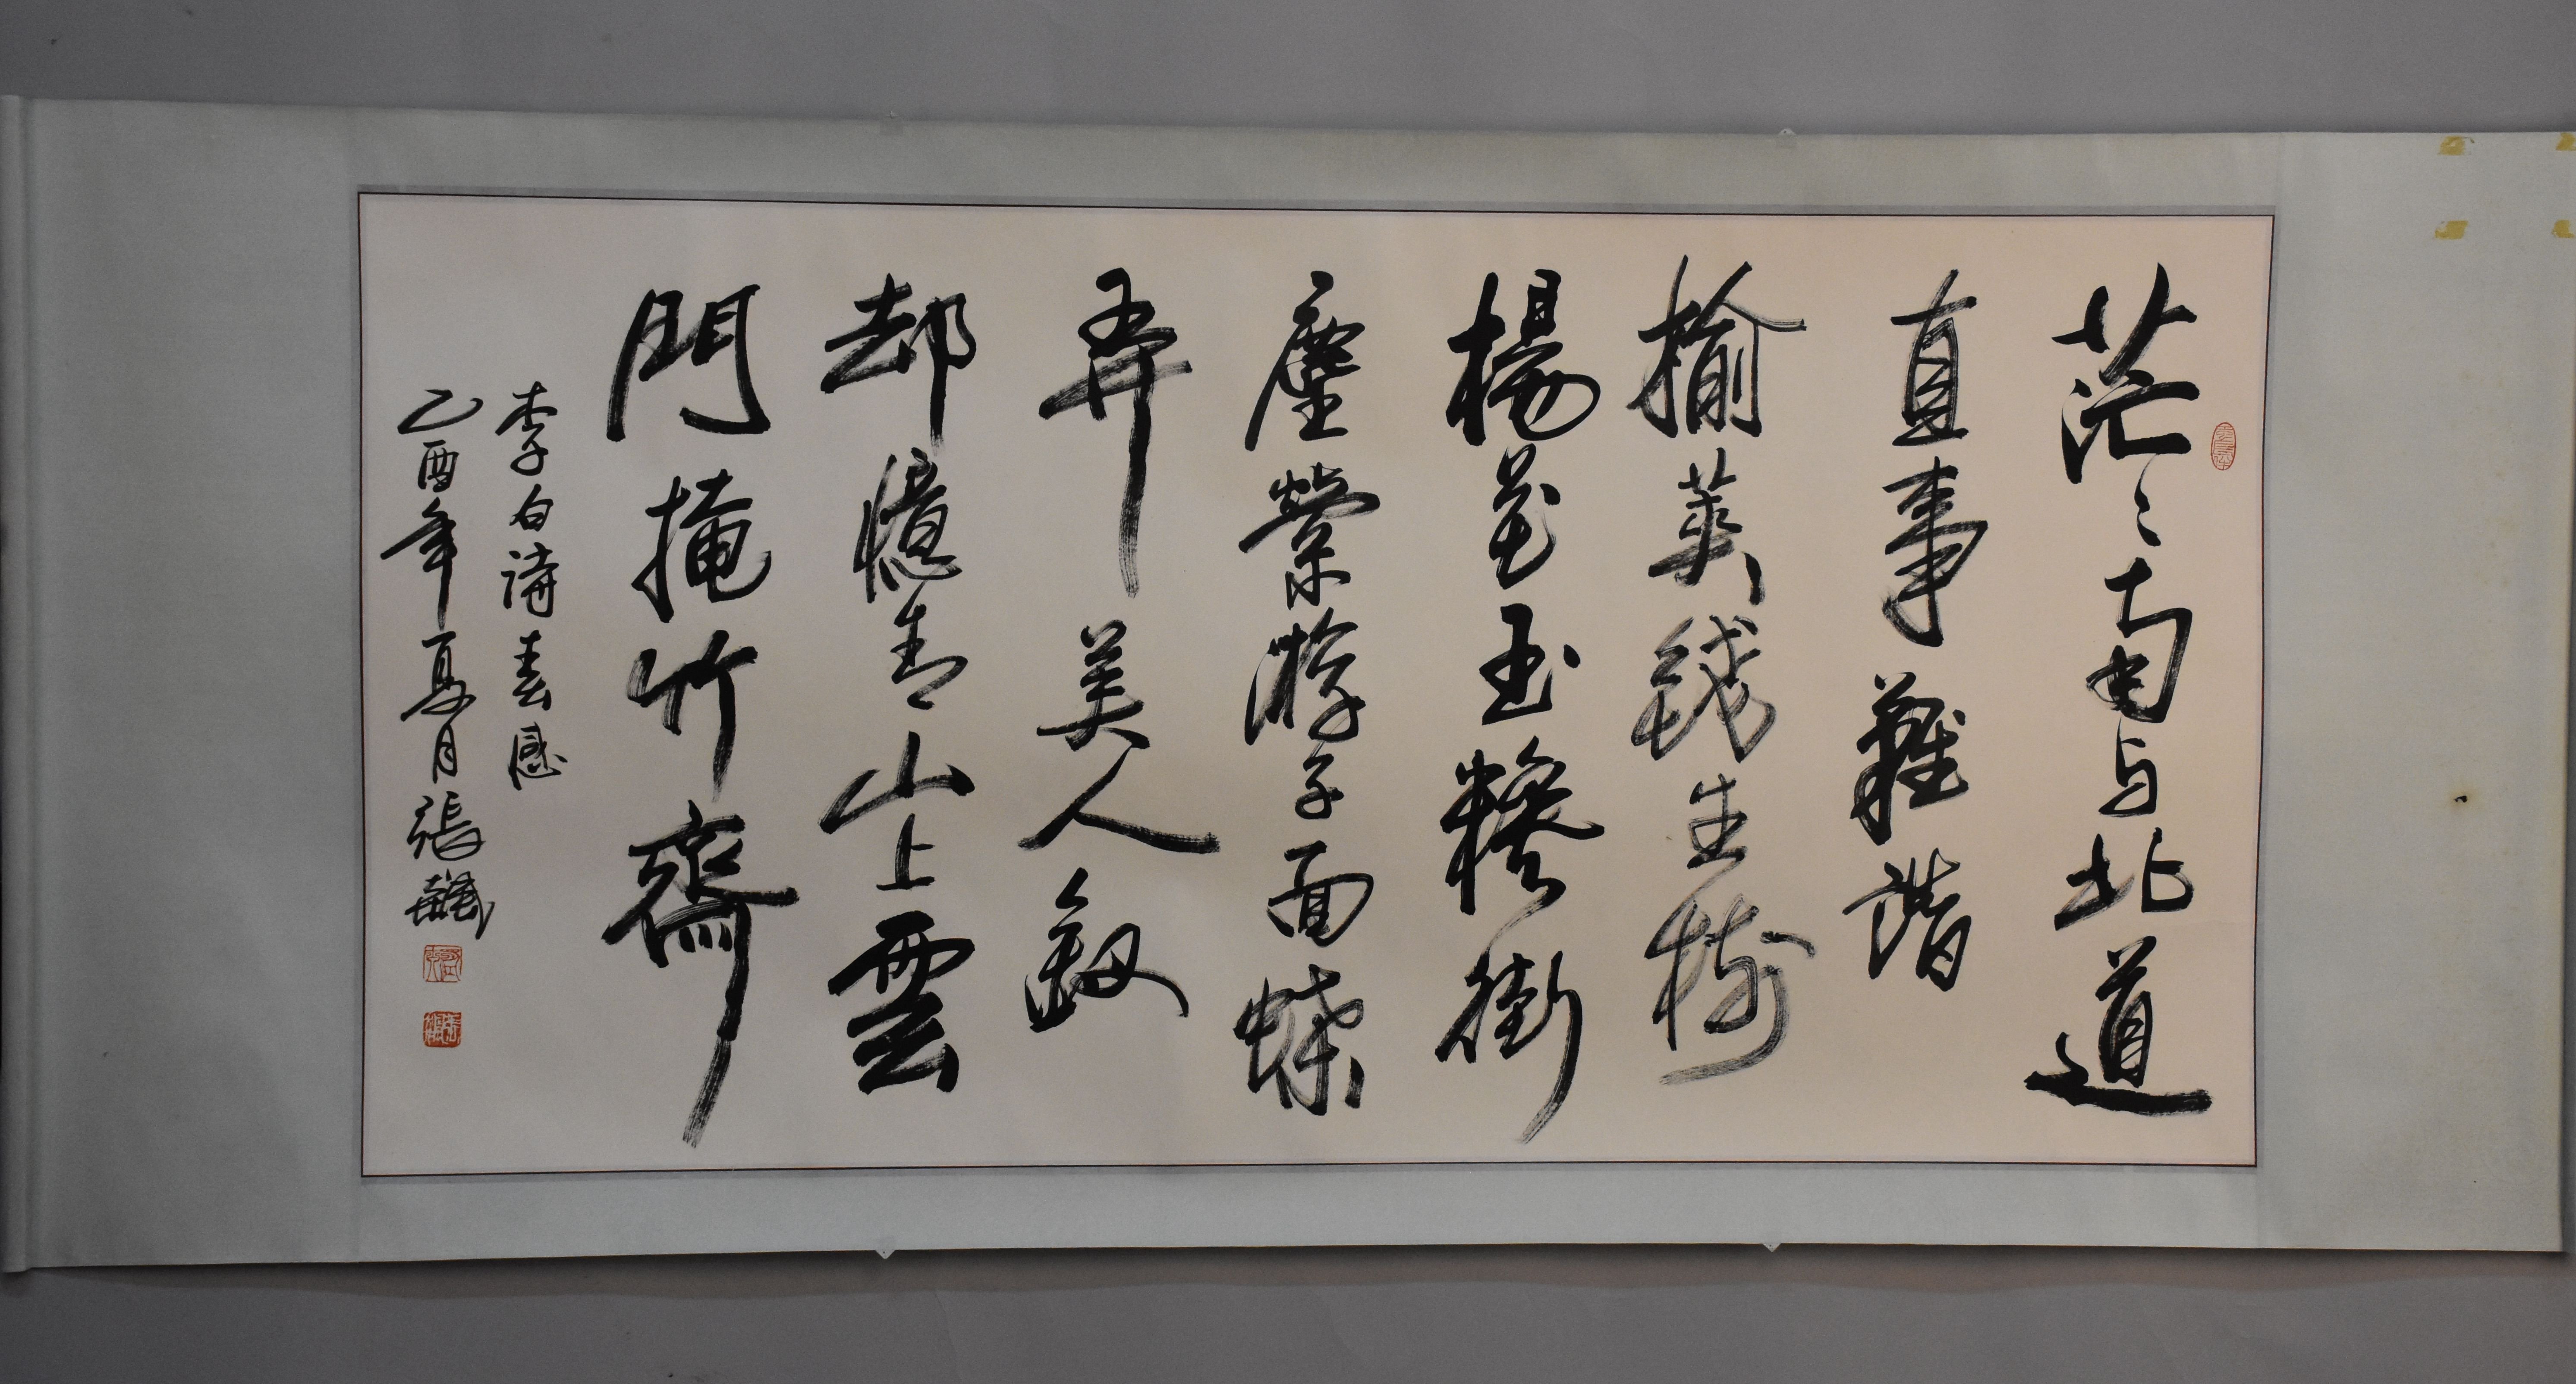 茫〻南与北道
直事難諧
榆荚錢生樹
楊花玉糝街
塵縈游子面蝶
弄美人釵
却憶青山上雲
門掩竹齋
李白詩春感
乙酉年夏月張